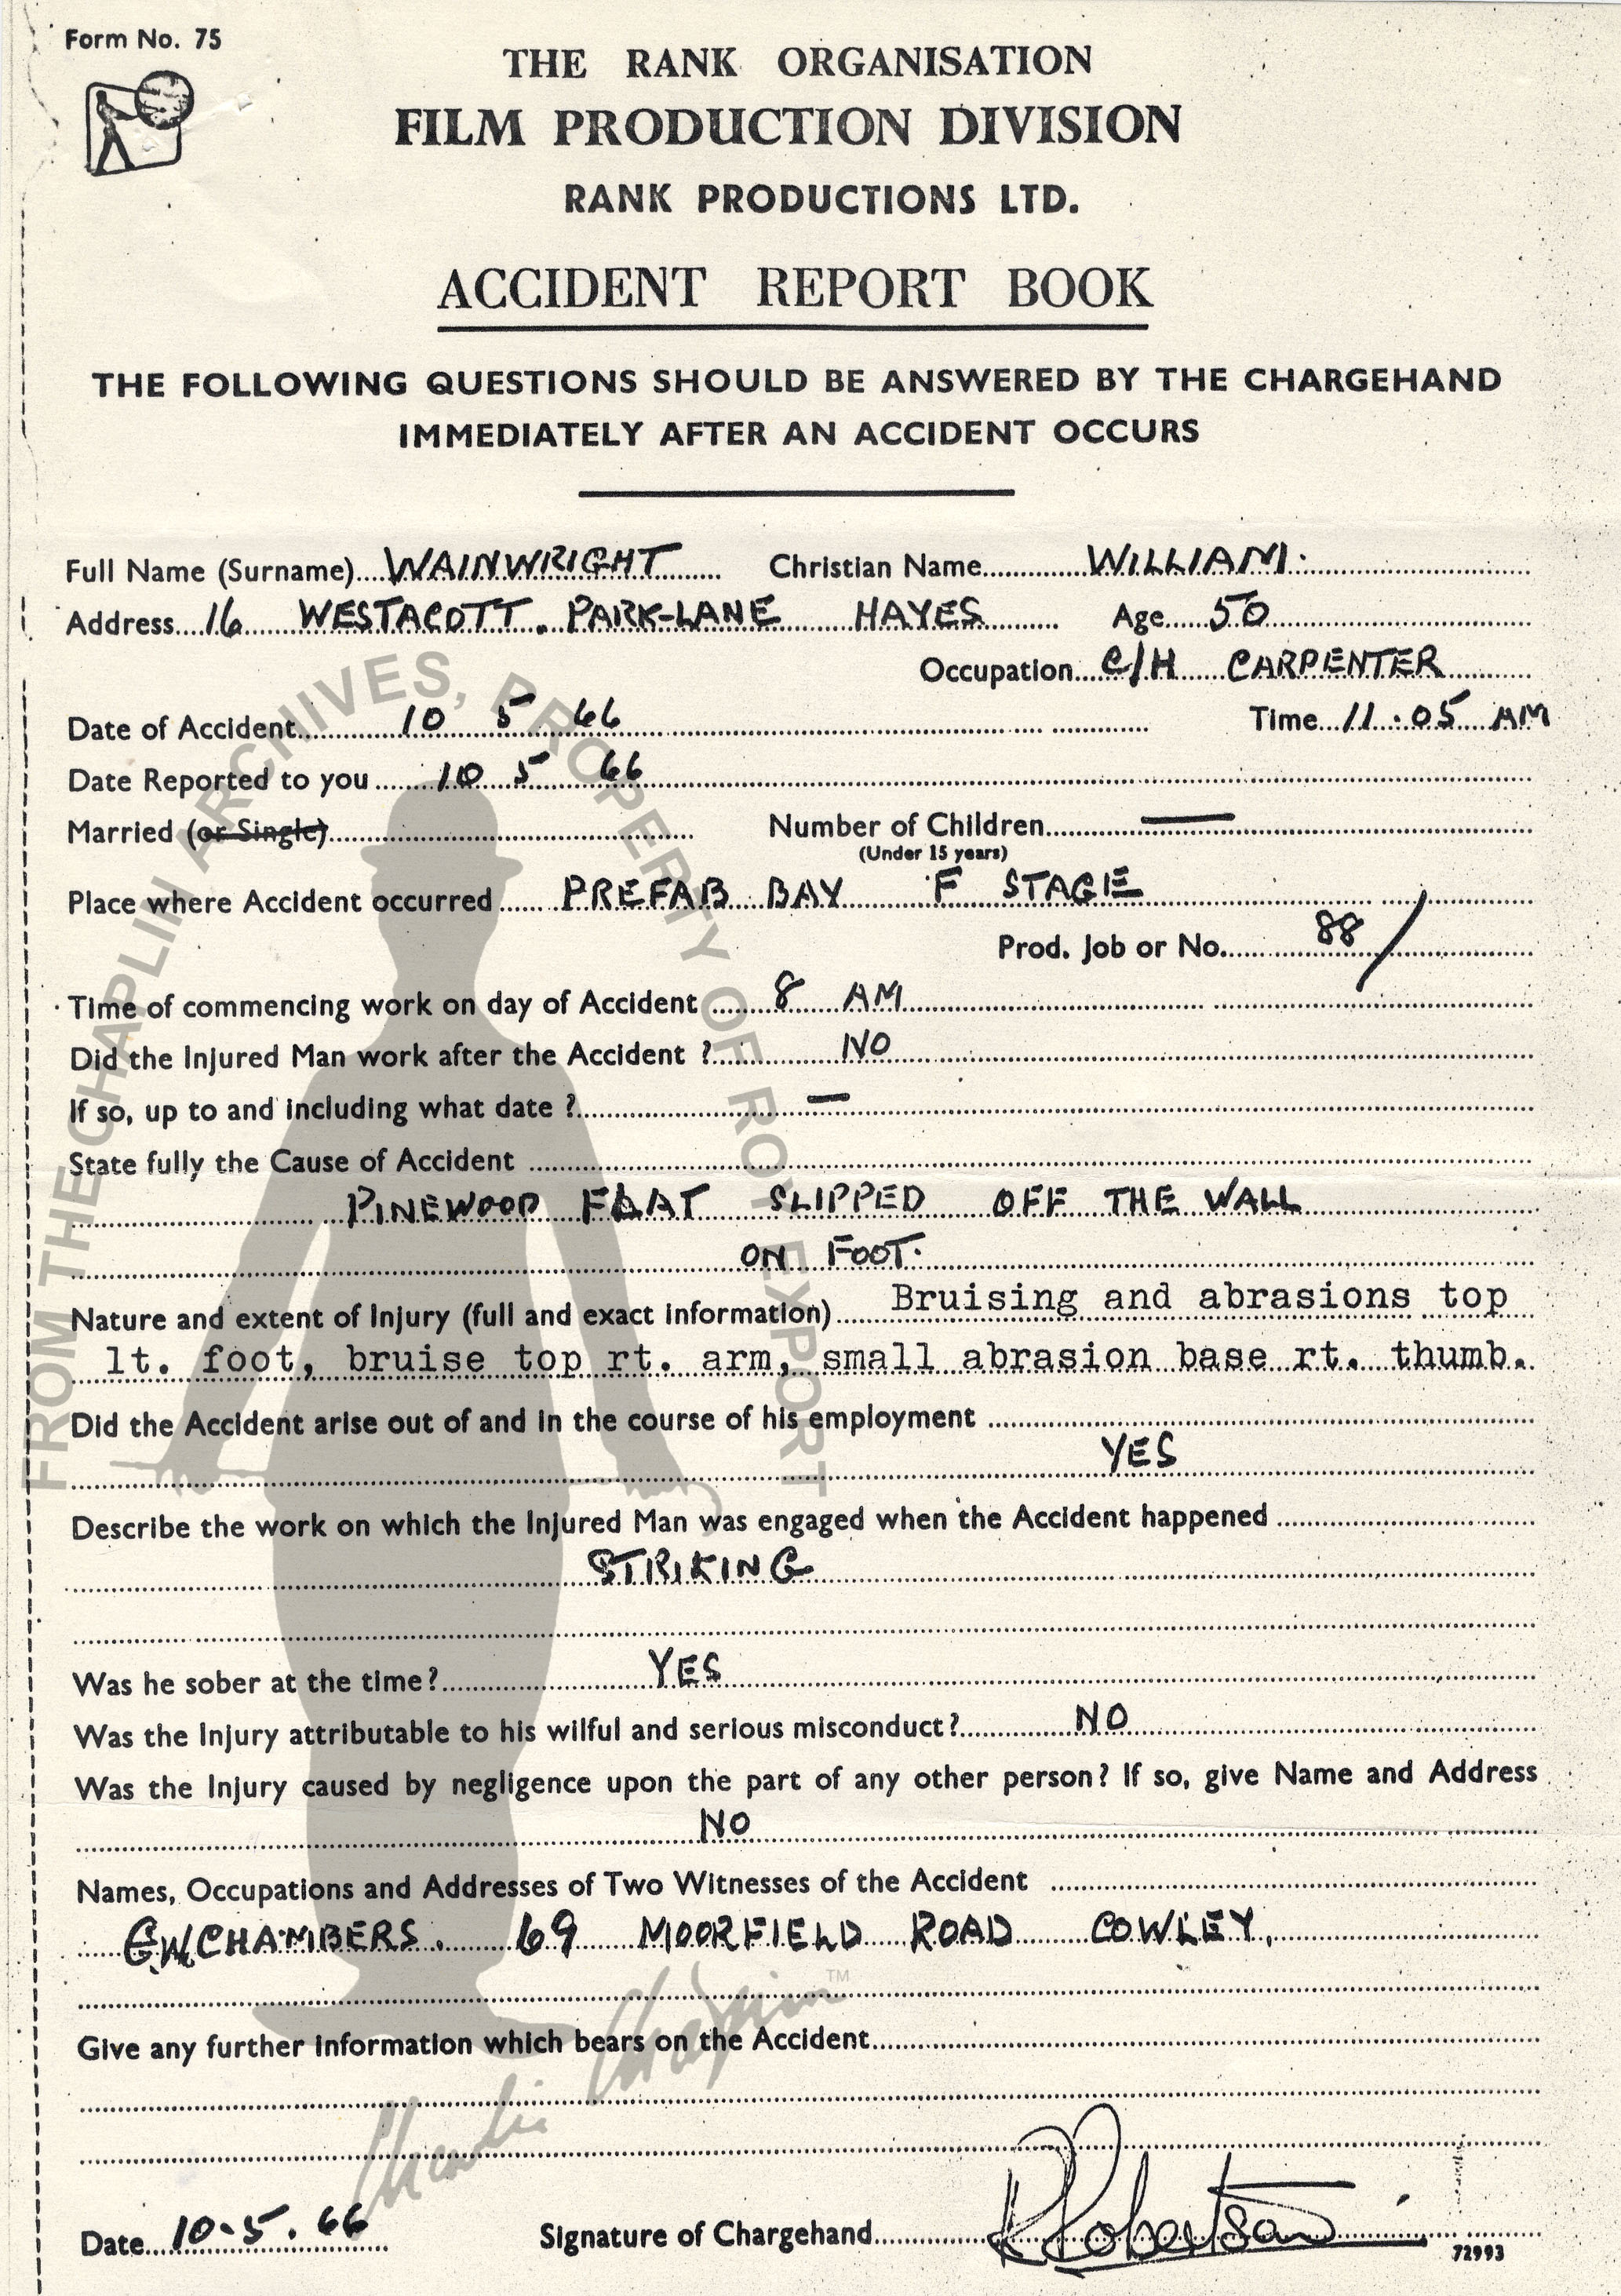 Form No. 75
THE RANK ORGANISATION
FILM PRODUCTION DIVISION
RANK PRODUCTIONS LTD.
ACCIDENT REPORT BOOK
THE FOLLOWING QUESTIONS SHOULD BE ANSWERED BY THE CHARGEHAND
IMMEDIATELY AFTER AN ACCIDENT OCCURS
Full Name (Surname) WAINWRIGHT Christian Name WILLIAM.
Address 16 WESTACOTT. PARK-LANE HAYES Age 50
Occupation C/H CARPENTER
Date of Accident 10 5 66 Time 11.05 AM
Date Reported to you 10 5 66
Married (or Single) Number of Children —
(Under 15 years)
Place where Accident occurred PREFAB BAY F STAGE
Prod. Job or No. 88 /
Time of commencing work on day of Accident 8 AM
Did the Injured Man work after the Accident ? NO
If so, up to and including what date ? —
State fully the Cause of Accident
PINEWOOD FLAT SLIPPED OFF THE WALL
ON FOOT.
Nature and extent of Injury (full and exact information) Bruising and abrasions top
lt. foot, bruise top rt. arm, small abrasion base rt. thumb.
Did the Accident arise out of and in the course of his employment
YES
Describe the work on which the Injured Man was engaged when the Accident happened
STRIKING
Was he sober at the time? YES
Was the Injury attributable to his wilful and serious misconduct? NO
Was the Injury caused by negligence upon the part of any other person? If so, give Name and Address
NO
Names, Occupations and Addresses of Two Witnesses of the Accident
G.W. CHAMBERS. 69 MOORFIELD ROAD COWLEY.
Give any further information which bears on the Accident
Date 10-5.66 Signature of Chargehand R Robertson
72993
FROM THE CHAPLIN ARCHIVES, PROPERTY OF ROY EXPORT
Charlie Chaplin™